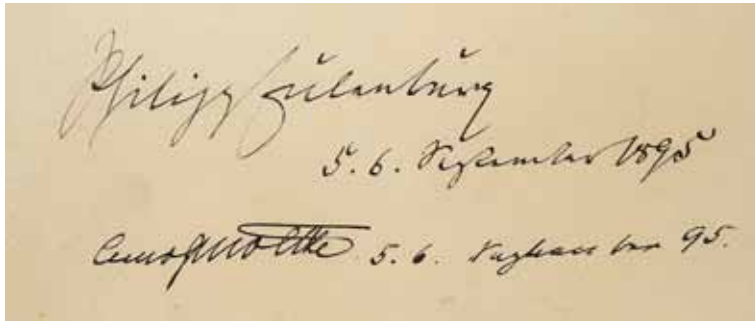 Philipp Eulenburg
5. 6. September 1895
Cuno Moltke 5. 6. September 95.